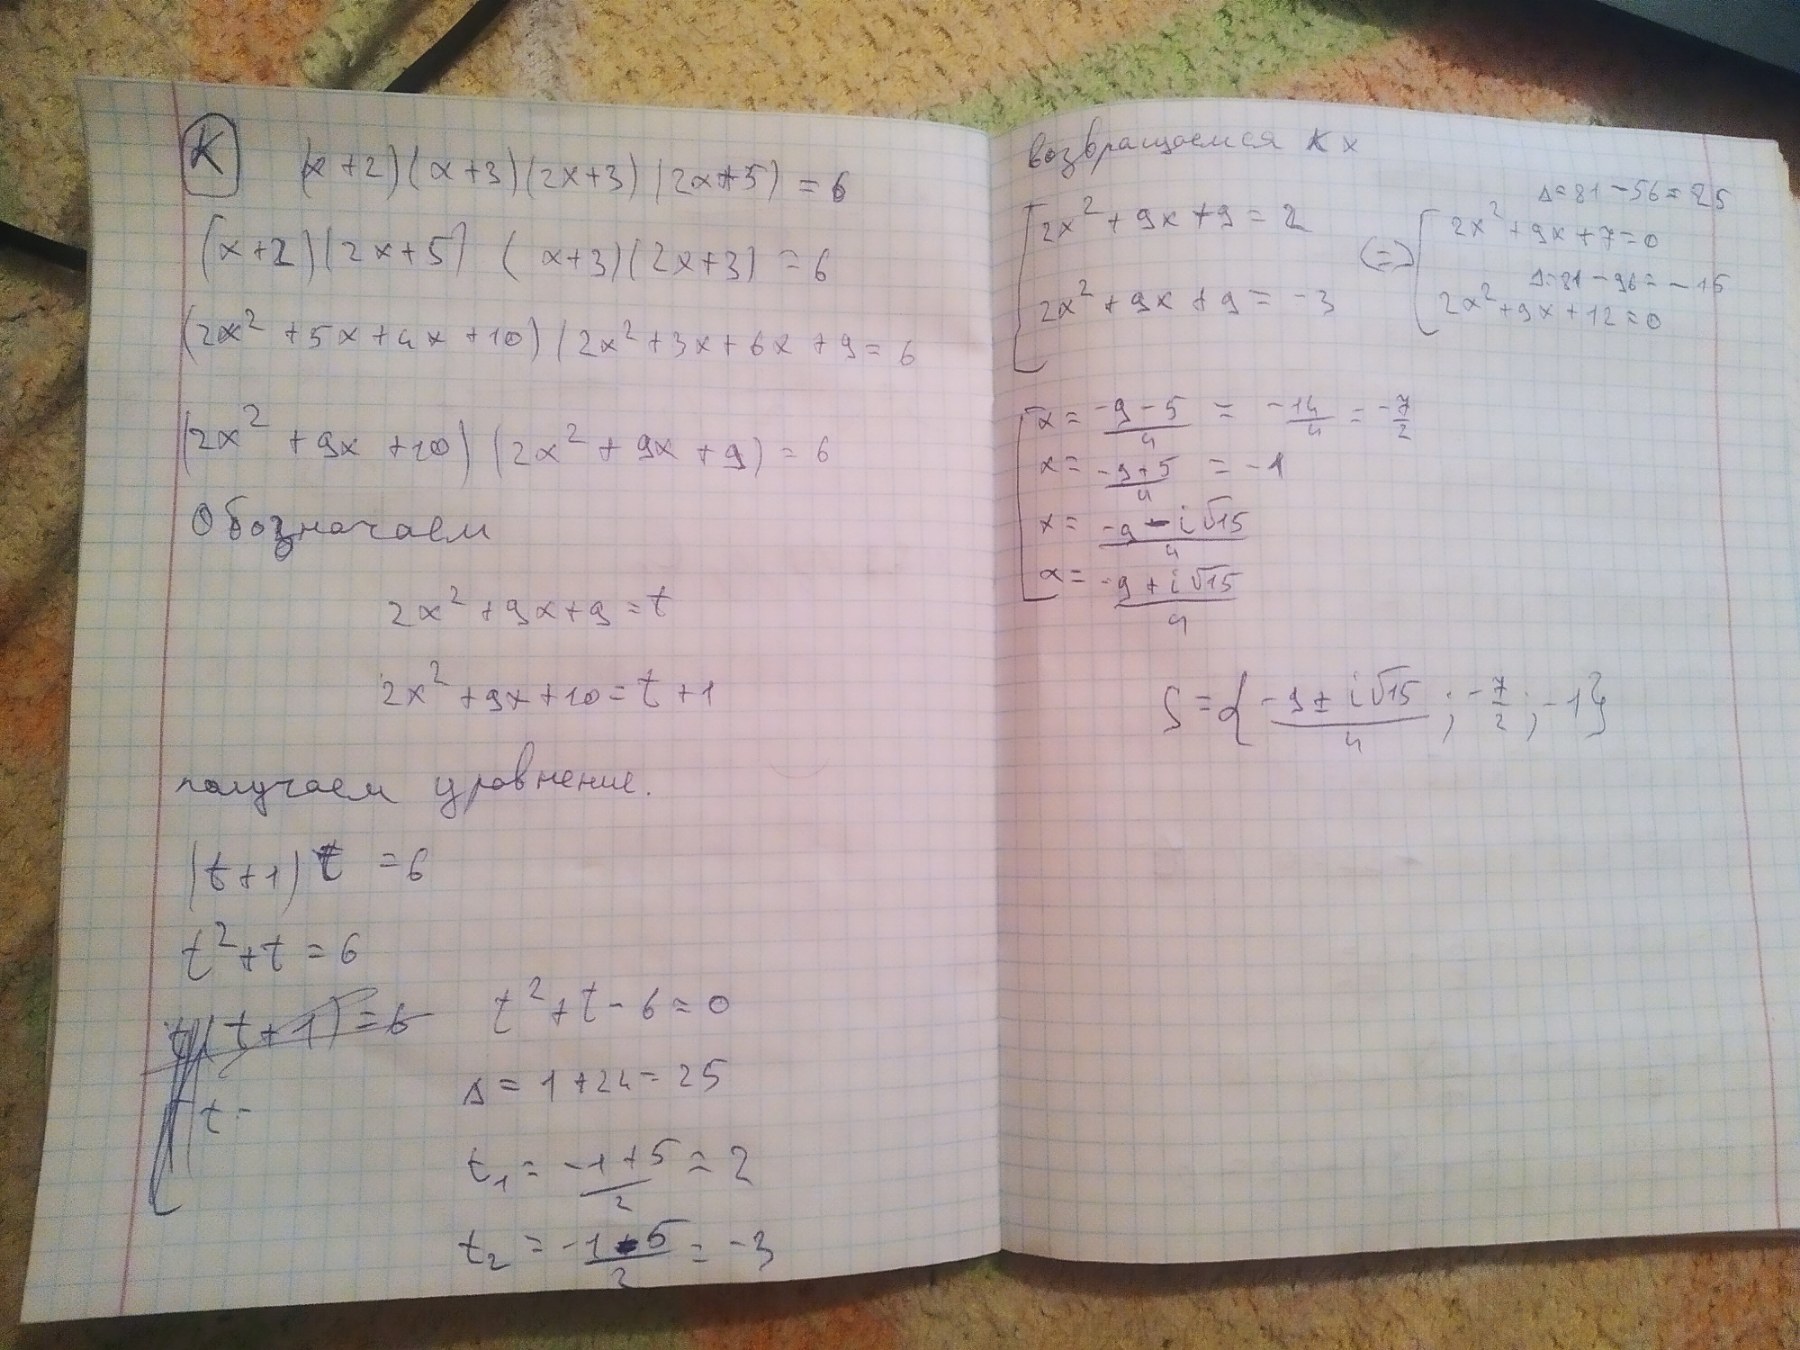 K
(x+2)(x+3)(2x+3)(2x+5)=6
(x+2)(2x+5) (x+3)(2x+3)=6
(2x²+5x+4x+10)(2x²+3x+6x+9=6
(2x²+9x+10)(2x²+9x+9)=6
Обозначаем
2x²+9x+9=t
2x²+9x+10=t+1
получаем уровнение.
(t+1)t=6
t²+t=6
t(t+1)=6
t=
t²+t-6=0
Δ=1+24=25
t₁=\frac{-1+5}{2}=2
t₂=\frac{-1-5}{2}=-3
возвращаемся к x
[2x²+9x+9=2
2x²+9x+9=-3
(=)
Δ=81-56=25
[2x²+9x+7=0
Δ=81-96=-15
2x²+9x+12=0
[x=\frac{-9-5}{4}=\frac{-14}{4}=\frac{-7}{2}
x=\frac{-9+5}{4}=-1
x=\frac{-9-i√15}{4}
x=\frac{-9+i√15}{4}
S={\frac{-9±i√15}{4};-\frac{7}{2};-1}